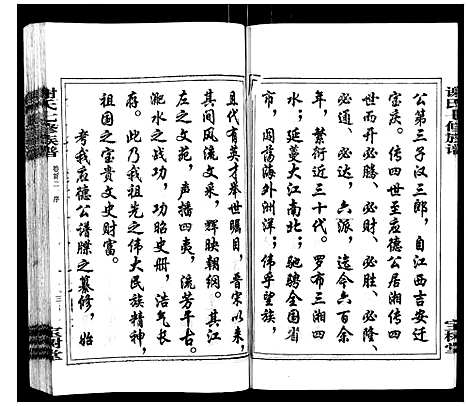 谢氏七修族谱
宝树堂
公第三子汉三郎，自江西吉安迁
宝庆。传四世至应德公居湘传四
世而开必胜、必财、必胜、必隆、
必通、必达，六派，迄今六百余
年，繁衍近三十代。罗布三湘四
水；延蔓大江南北；驰骋全国省
市，闯荡海外洲洋；伟乎望族，
且代有英才举世瞩目，晋宋以来，
其间风流文采，辉映朝纲。其江
左之文苑，声播四夷，流芳千古。
淝水之战功，功昭史册，浩气长
存。此乃我祖先之伟大民族精神，
祖国之宝贵文史财富。
考我应德公谱牒之纂修，始
谢氏七修族谱
卷首二 序
宝树堂